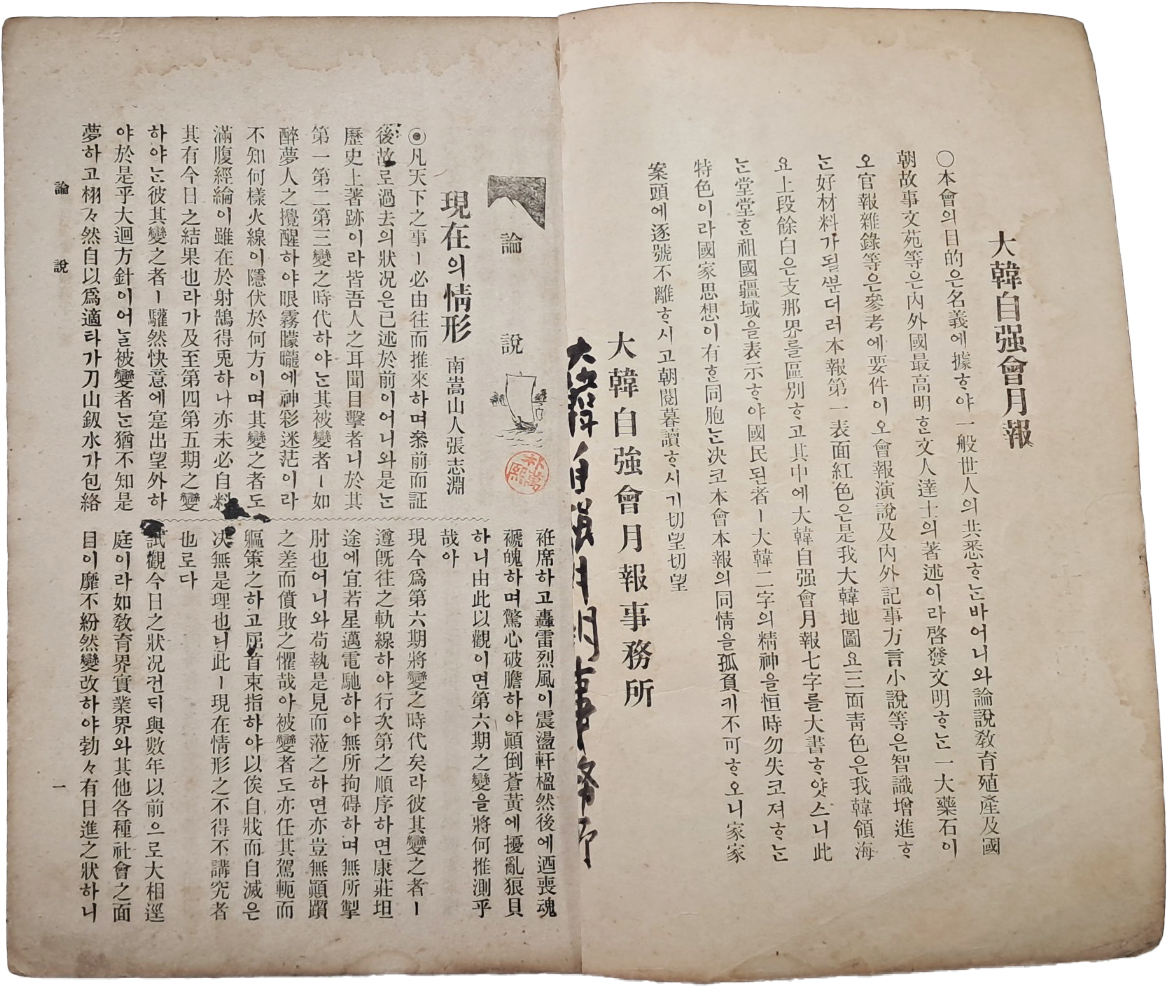 大韓自强會月報
○本會의目的은名義에據ᄒᆞ야一般世人의共悉ᄒᆞᄂᆞᆫ바어니와論說敎育殖產及國
朝故事文苑等은內外國最高明ᄒᆞᆫ文人達士의著述이라啓發文明ᄒᆞᄂᆞᆫ一大藥石이
오官報雜錄等은參考에要件이오會報演說及內外記事方言小說等은智識增進ᄒᆞ
ᄂᆞᆫ好材料가될ᄲᅮᆫ더러本報第一表面紅色은是我大韓地圖요三面靑色은我韓領海
요上段餘白은支那界를區別ᄒᆞ고其中에大韓自强會月報七字를大書ᄒᆞ얏스니此
ᄂᆞᆫ堂堂ᄒᆞᆫ祖國疆域을表示ᄒᆞ야國民된者ㅣ大韓二字의精神을恒時勿失코져ᄒᆞᄂᆞᆫ
特色이라國家思想이有ᄒᆞᆫ同胞ᄂᆞᆫ決코本會本報의同情을孤負키不可ᄒᆞ오니家家
案頭에逐號不離ᄒᆞ시고朝閱暮讀ᄒᆞ시기切望切望
大韓自强會月報事務所
論說
現在의情形
南嵩山人張志淵
◉凡天下之事ㅣ必由往而推來하며叅前而証
後故로過去의狀况은已述於前이어니와是ᄂᆞᆫ
歷史上著跡이라皆吾人之耳聞目擊者니於其
第一第二第三變之時代하야ᄂᆞᆫ其被變者ㅣ如
醉夢人之攪醒하야眼霧朦曨에神彩迷茫이라
不知何樣火線이隱伏於何方이며其變之者도
滿腹經綸이雖在於射鵠得兎하나亦未必自料
其有今日之結果也라가及至第四第五期之變
하야ᄂᆞᆫ彼其變之者ㅣ驩然快意에寔出望外하
야於是乎大迴方針이어ᄂᆞᆯ被變者ᄂᆞᆫ猶不知是
夢하고栩々然自以爲適타가刀山釼水가包絡
袵席하고轟雷烈風이震盪軒楹然後에迺喪魂
禠魄하며驚心破膽하야顚倒蒼黃에擾亂狼貝
하니由此以觀이면第六期之變을將何推測乎
哉아
現今爲第六期將變之時代矣라彼其變之者ㅣ
遵旣往之軌線하야行次第之順序하면康莊坦
途에宜若星邁電馳하야無所拘碍하며無所掣
肘也어니와苟執是見而蒞之하면亦豈無顚躓
之差而僨敗之懼哉아被變者도亦任其駕軛而
驅策之하고屈首束指하야以俟自戕而自滅은
决無是理也니此ㅣ現在情形之不得不講究者
也로다
試觀今日之狀况컨ᄃᆡ與數年以前으로大相逕
庭이라如敎育界實業界와其他各種社會之面
目이靡不紛然變改하야勃々有日進之狀하니
論說
一